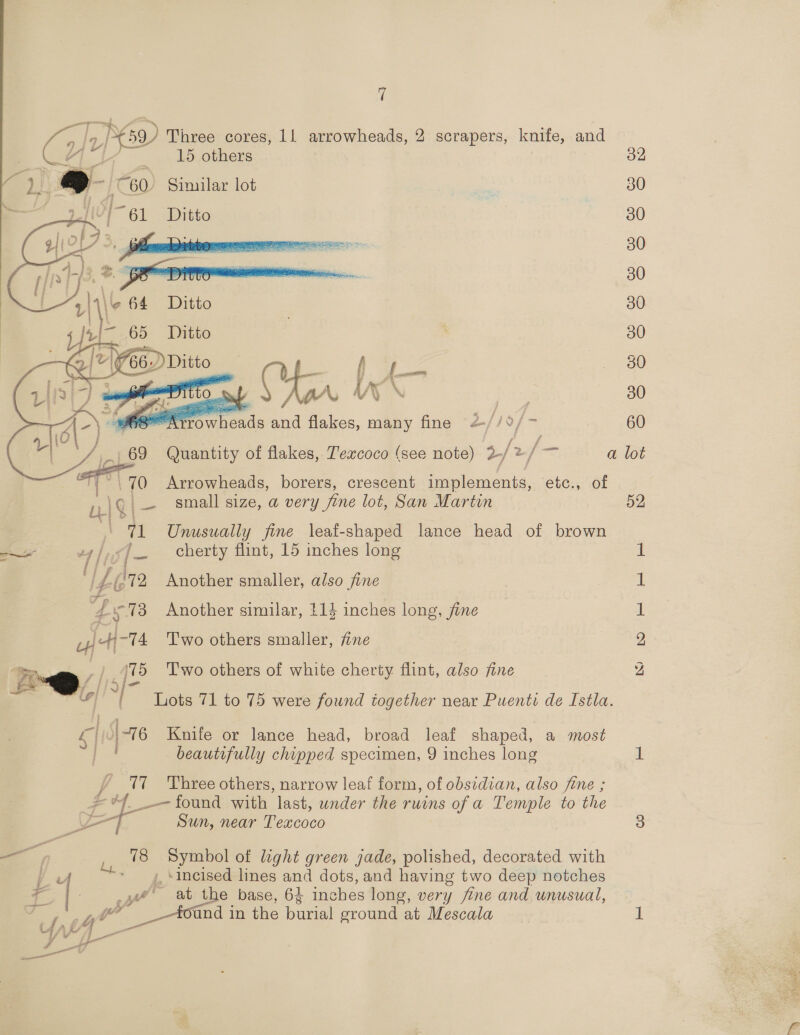 7
59 Three cores, 11 arrowheads, 2 scrapers, knife, and
15 others 32
60 Similar lot 30
61 Ditto 30
Ditto 30
Ditto 30
64 Ditto 30
65 Ditto 30
66 Ditto 30
Ditto 30
68 Arrowheads and flakes, many fine 2/10/- 60
69 Quantity of flakes, Texcoco (see note) 2/2/- a lot
70 Arrowheads, borers, crescent implements, etc., of
small size, a very fine lot, San Martin 52
71 Unusually fine leaf-shaped lance head of brown
cherty flint, 15 inches long 1
72 Another smaller, also fine 1
73 Another similar, 11½ inches long, fine 1
74 Two others smaller, fine 2
75 Two others of white cherty flint, also fine 2
Lots 71 to 75 were found together near Puenti de Istla.
76 Knife or lance head, broad leaf shaped, a most
beautifully chipped specimen, 9 inches long 1
77 Three others, narrow leaf form, of obsidian, also fine ;
found with last, under the ruins of a Temple to the
Sun, near Texcoco 3
78 Symbol of light green jade, polished, decorated with
incised lines and dots, and having two deep notches
at the base, 6½ inches long, very fine and unusual,
found in the burial ground at Mescala 1